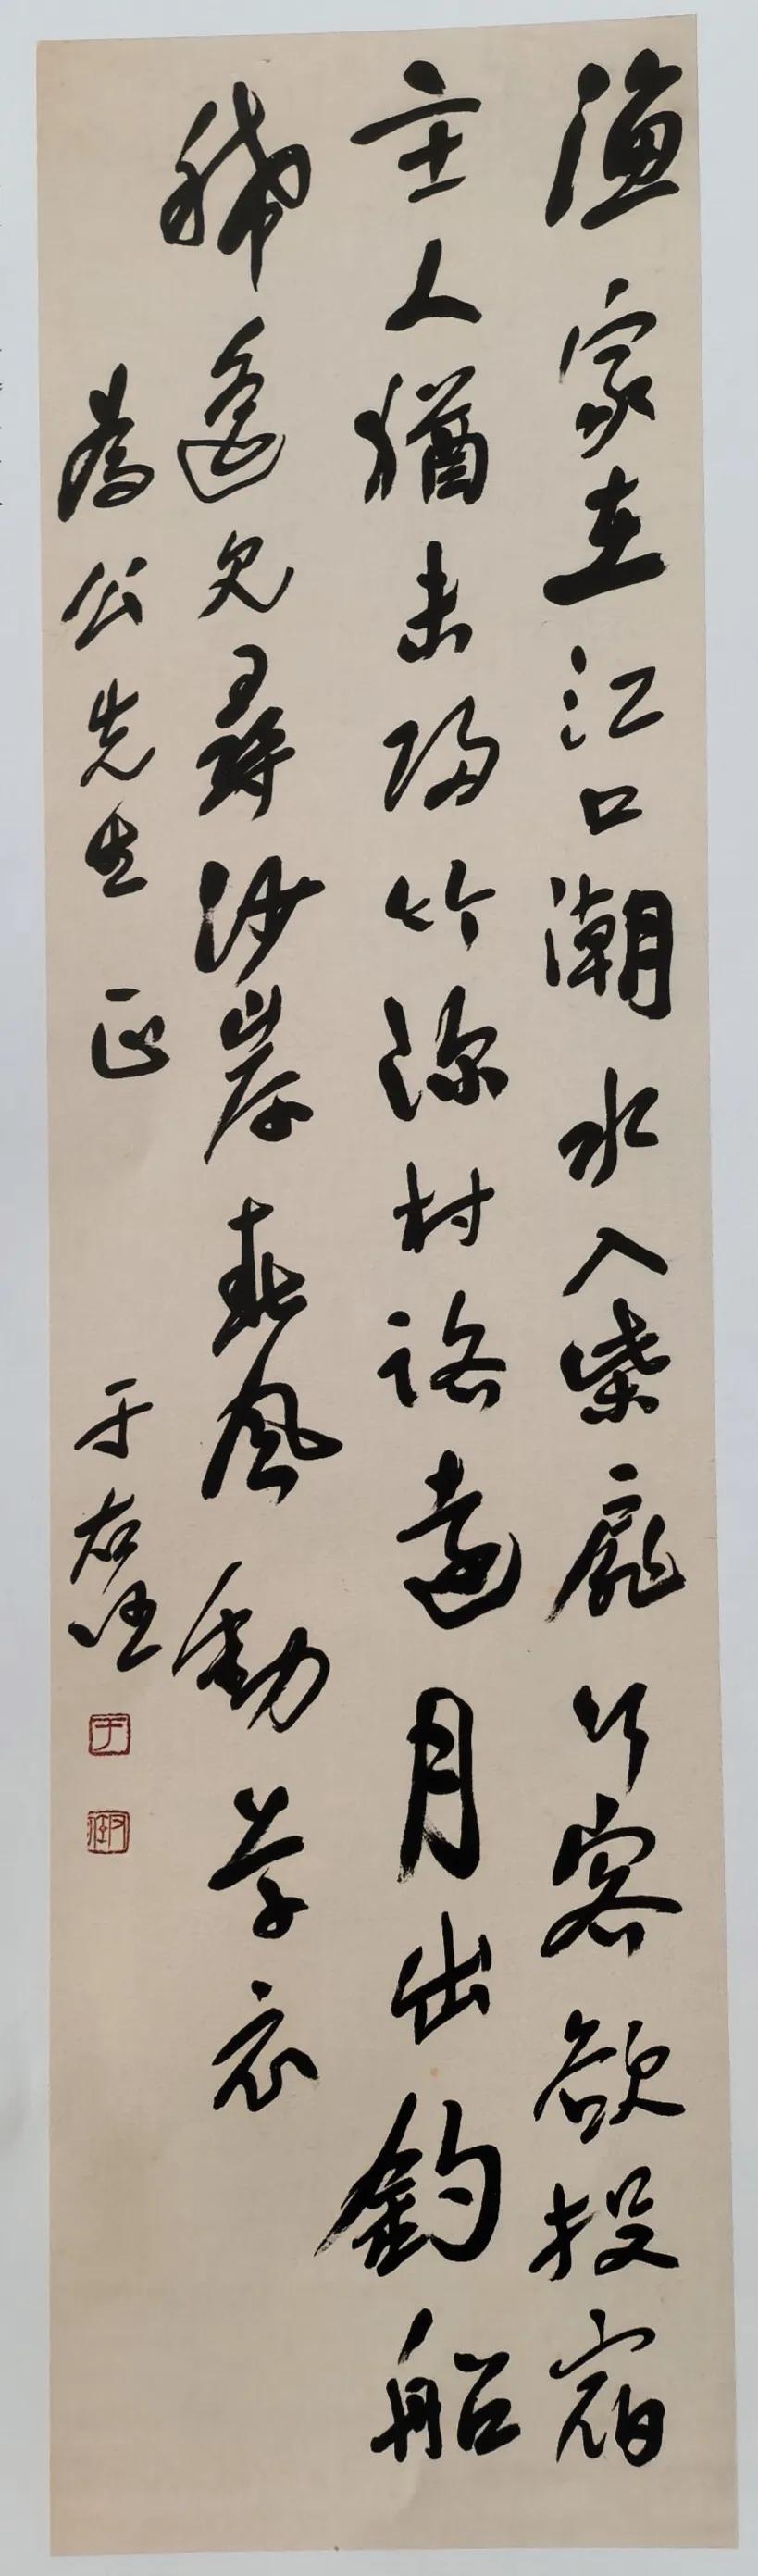 漁家在江口潮水入柴扉行客欲投宿
主人猶未歸竹深村路遠月出釣船
稀遙見尋沙岸春風動草衣
公先生 正 于右任
于
右任